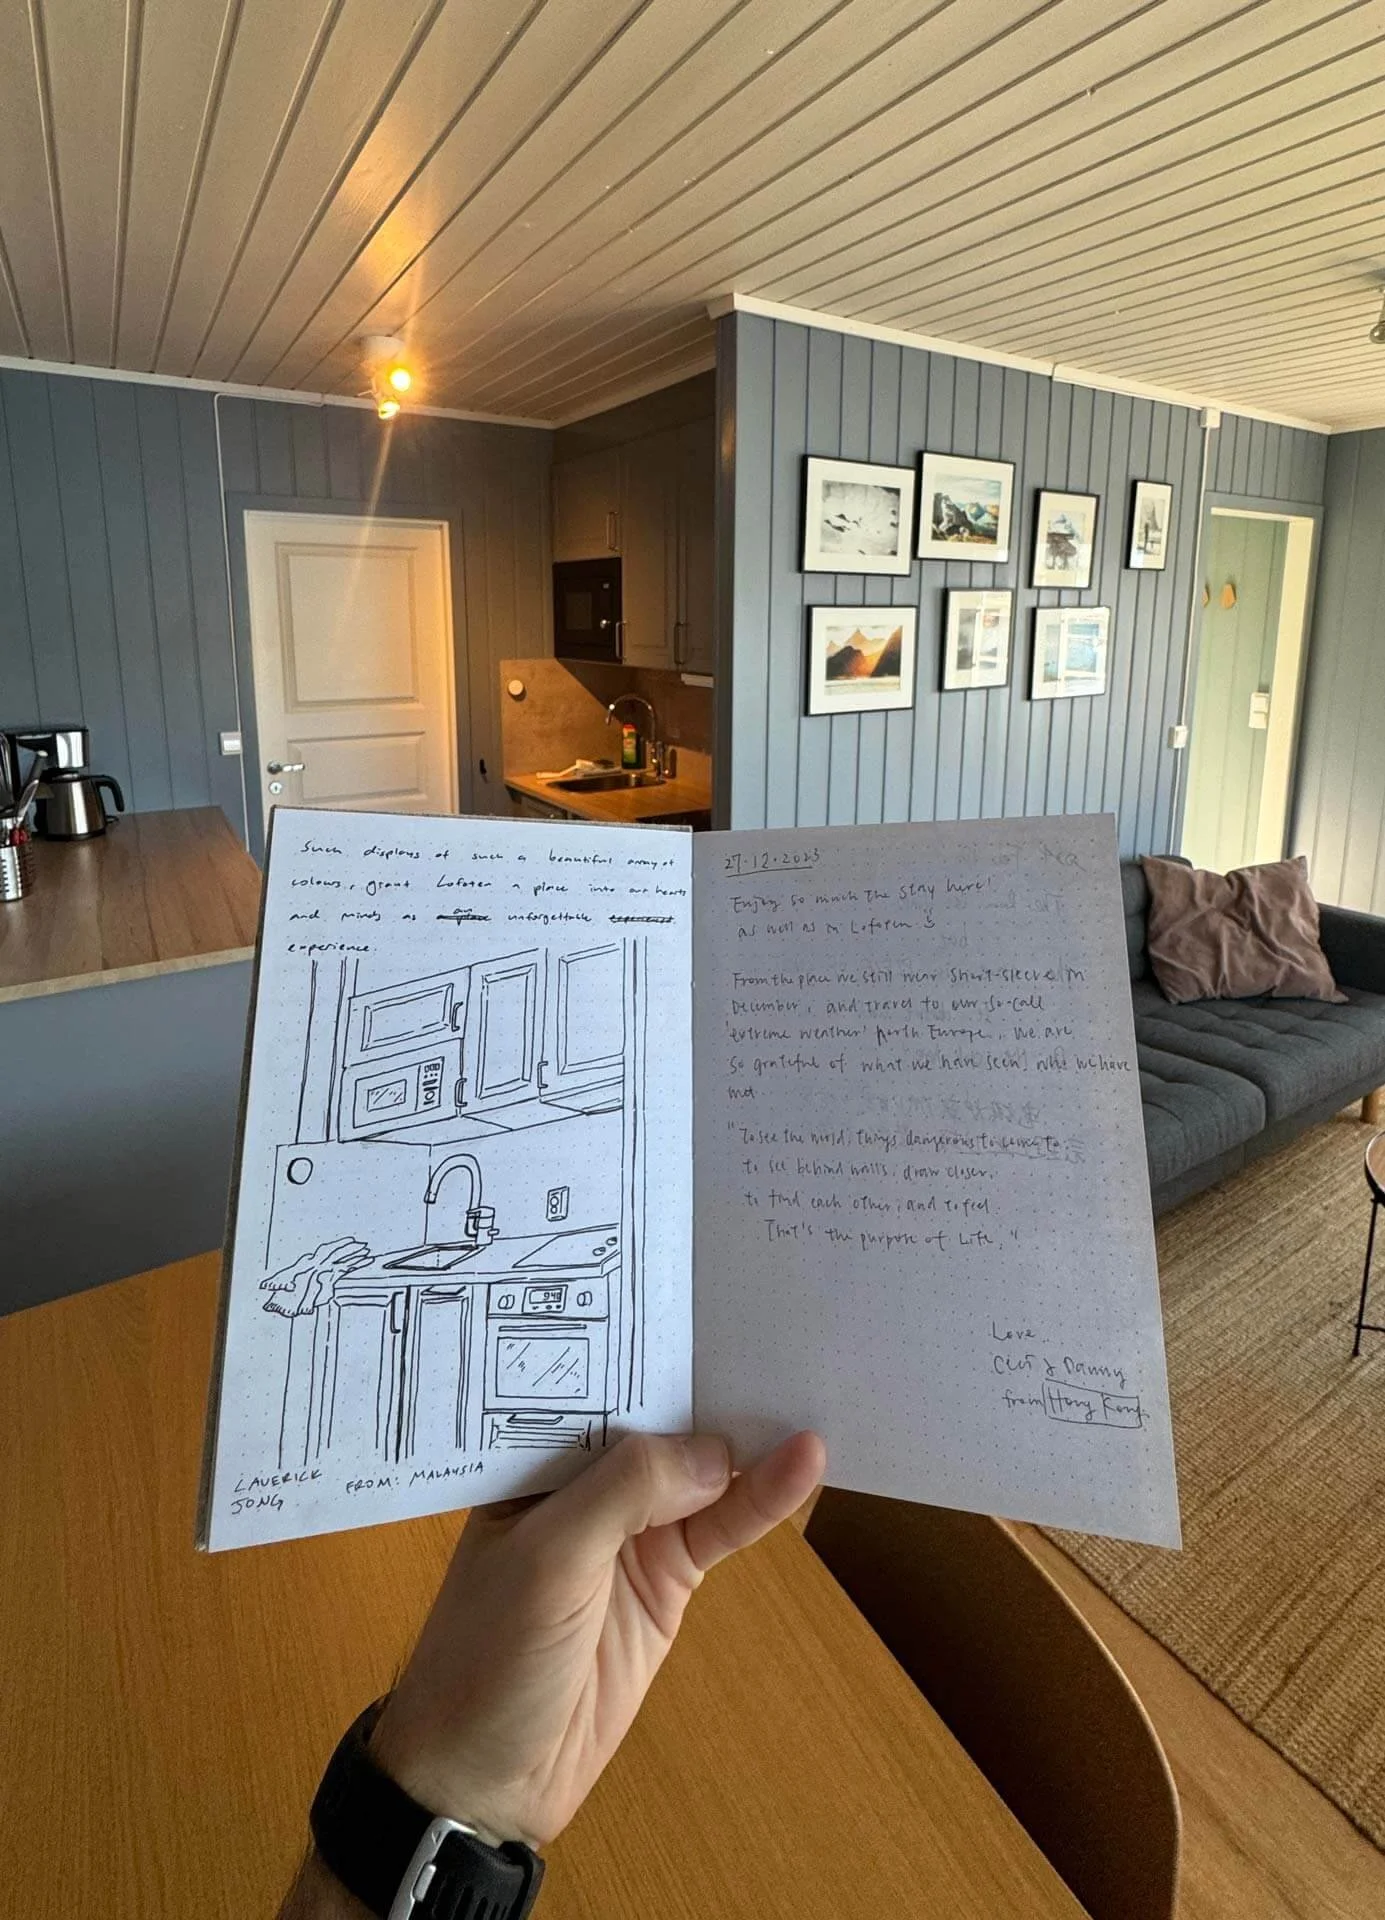 Such displays of such a beautiful array of
colours, grant Lofoten a place into our hearts
and minds as an unforgettable
experience.
940
LAVERICK
SONG
FROM: MALAYSIA
27.12.2023
Enjoy so much the stay here!
as well as in Lofoten
From the place we still wear short-sleeve in
December, and travel to our so-call
'extreme weather' North Europe, we are
so grateful of what we have seen, who we have
met
"To see the world, things dangerous to come to
to see behind walls, draw closer,
to find each other, and to feel.
That's the purpose of Life."
Love,
Cici & Danny
from Hong Kong